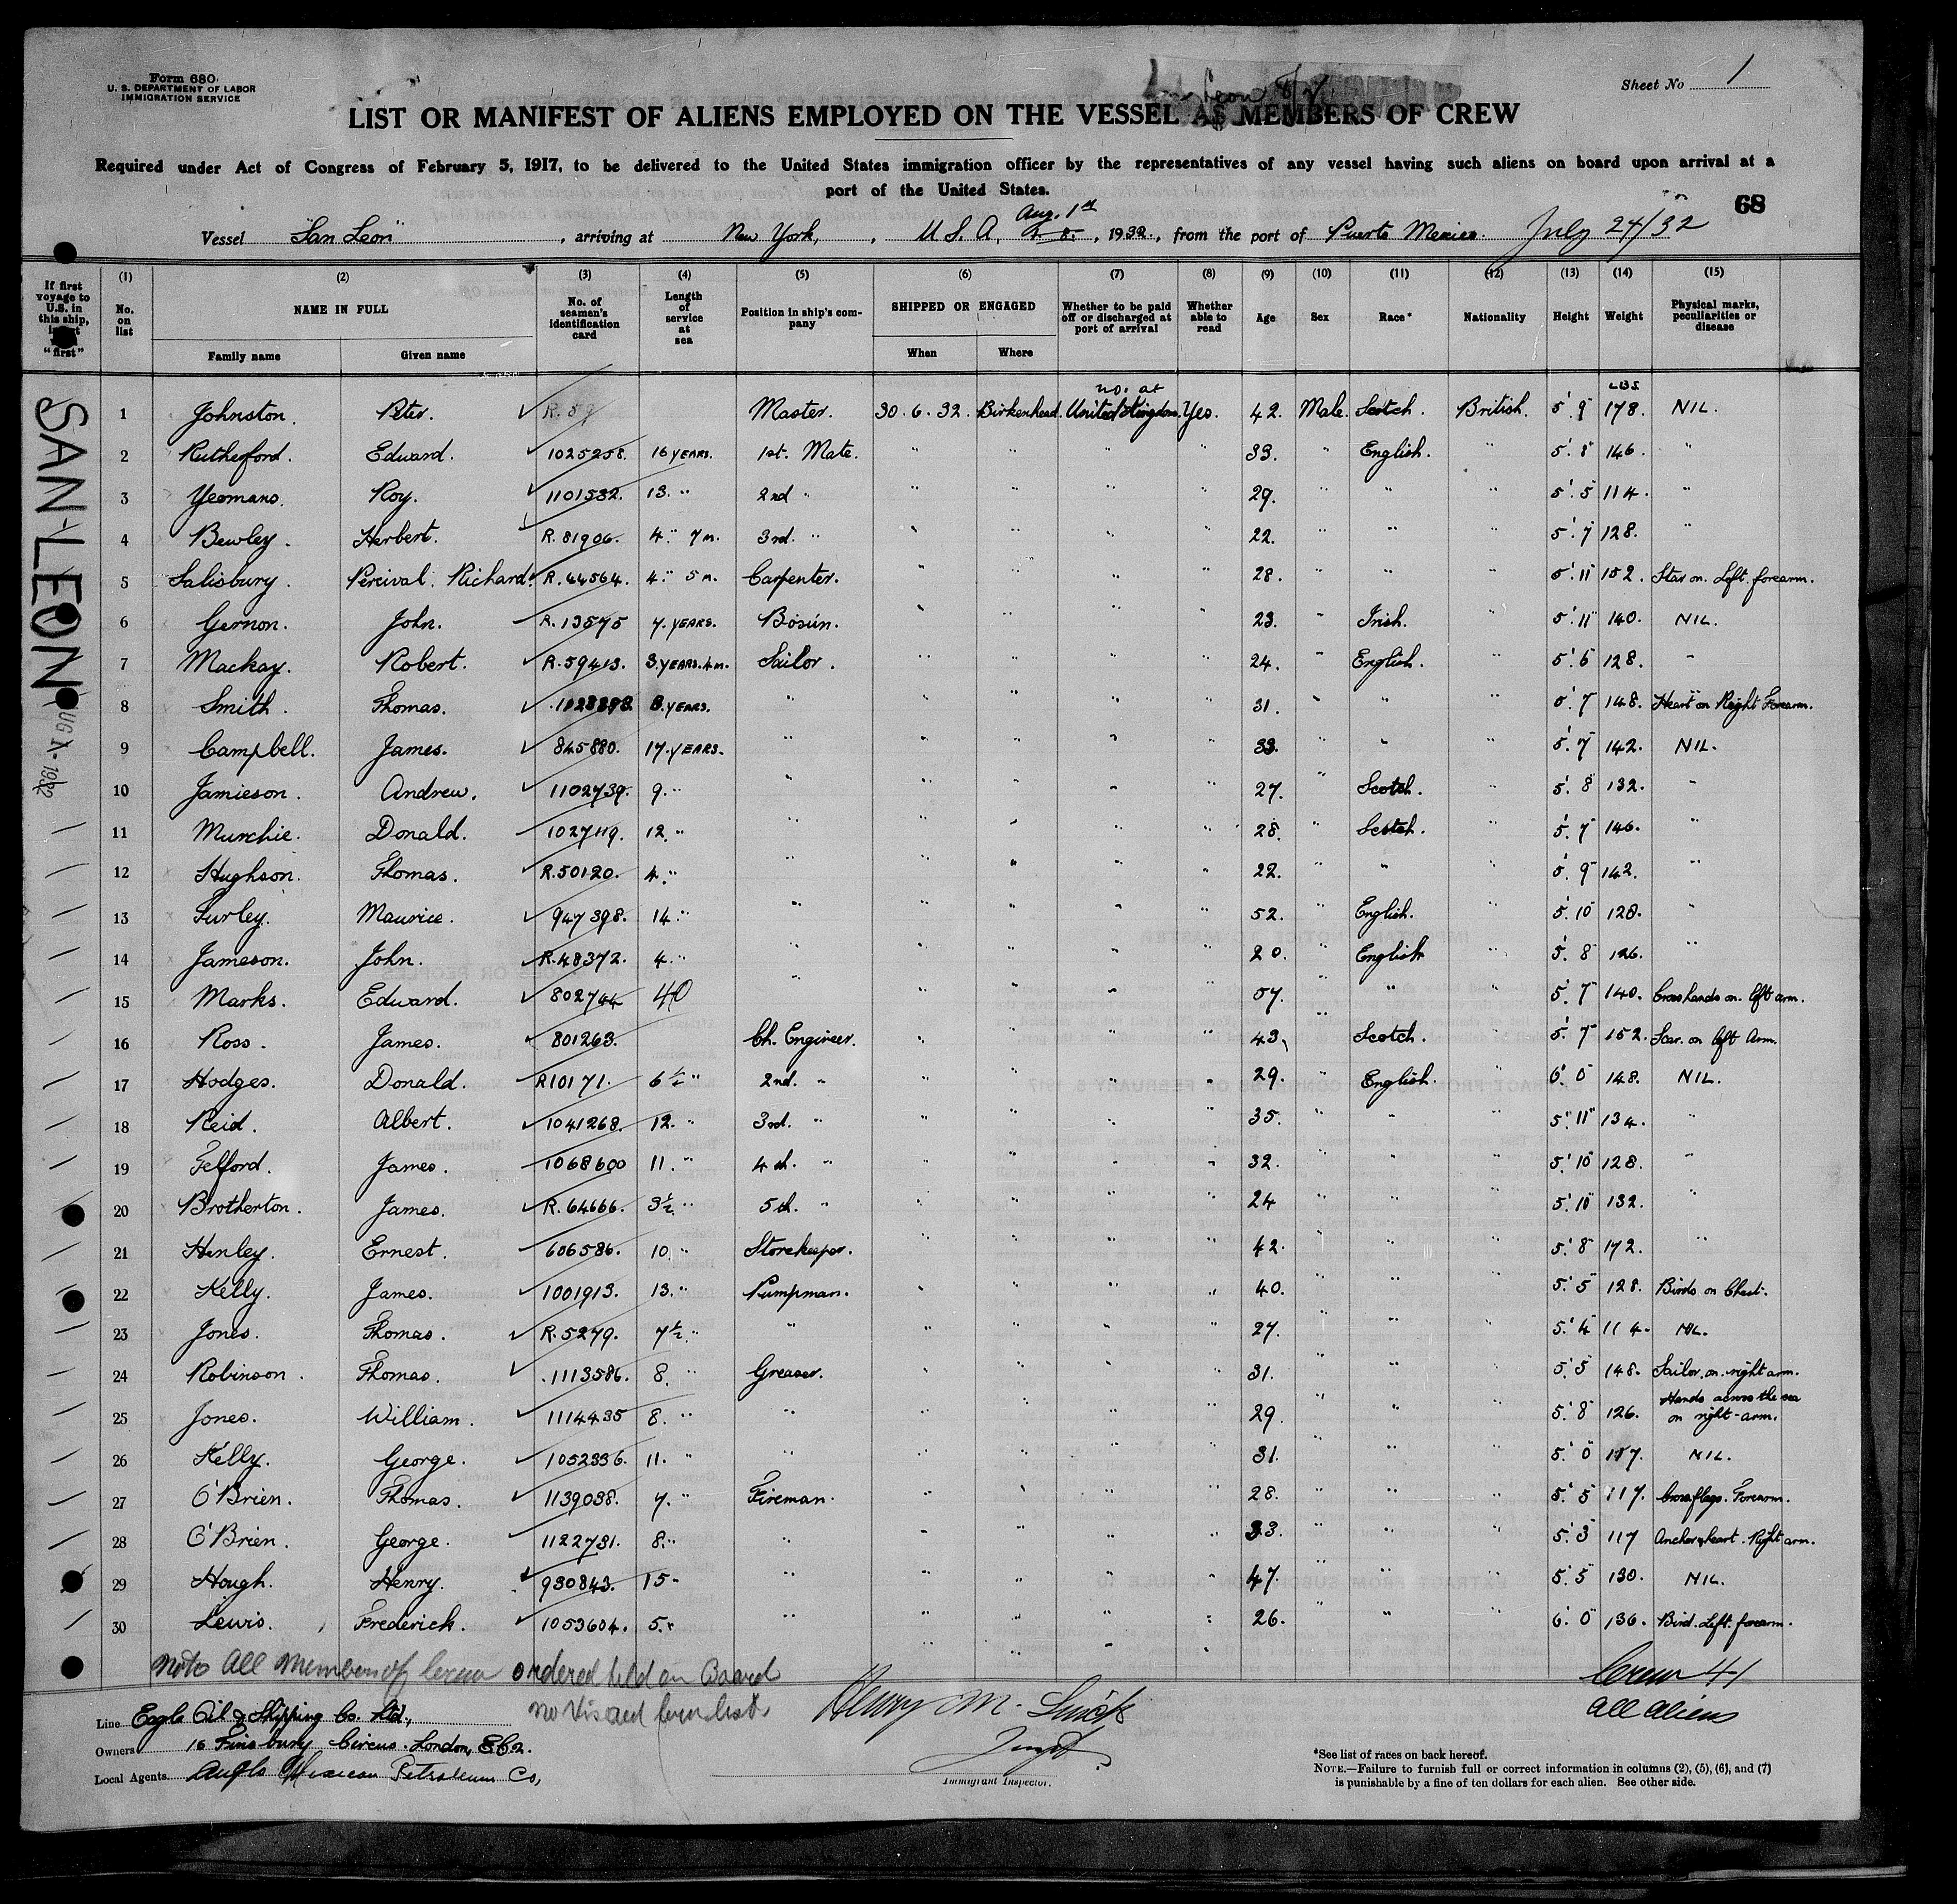 Form 680
U. S. DEPARTMENT OF LABOR
IMMIGRATION SERVICE
San Leon
Sheet No 1
LIST OR MANIFEST OF ALIENS EMPLOYED ON THE VESSEL AS MEMBERS OF CREW
Required under Act of Congress of February 5, 1917, to be delivered to the United States immigration officer by the representatives of any vessel having such aliens on board upon arrival at a
port of the United States.
68
Aug. 1st
Vessel "San Leon", arriving at New York, U.S.A, 1932, from the port of Puerto Mexico. July 24/32
If first voyage to U.S. in this ship, "first"
(1) No. on list
(2) NAME IN FULL Family name Given name
(3) No. of seamen's identification card
(4) Length of service at sea
(5) Position in ship's company
(6) SHIPPED OR ENGAGED When Where
(7) Whether to be paid off or discharged at port of arrival
(8) Whether able to read
(9) Age
(10) Sex
(11) Race*
(12) Nationality
(13) Height
(14) Weight
(15) Physical marks, peculiarities or disease
SAN LEON
no. at LBS
1 Johnston. Peter. Master. 30.6.32. Birkenhead. United Kingdom. Yes. 42. Male. Scotch. British. 5' 9" 178. NIL.
2 Rutherford. Edward. 1025258. 16 YEARS. 1st. Mate. " " " " 33. " English. " 5' 8" 146. "
3 Yeomans. Roy. 1101532. 13. " 2nd " " " " " 29. " " " 5' 5" 114. "
4 Bewley. Herbert. R.81906. 4 " 7 m. 3rd. " " " " " 22. " " " 5' 7" 128. "
5 Salisbury. Percival Richard. R.44564. 4 " 5 m. Carpenter. " " " " 28. " " " 5' 11" 152. Star on Left forearm.
6 Gernon. John. R.13575 7. YEARS. Bosun. " " " " 23. " Irish. " 5' 11" 140. NIL.
7 Mackay. Robert. R.59413. 3 YEARS. 4m. Sailor. " " " " 24. " English. " 5' 6" 128. "
8 Smith. Thomas. 8. YEARS. " " " " " 31. " " " 5' 7" 148. Heart on Right Forearm.
9 Campbell. James. 845880. 17. YEARS. " " " " " 33. " " " 5' 7" 142. NIL.
10 Jamieson. Andrew. 1102739. 9. " " " " " " 27. " Scotch. " 5' 8" 132. "
11 Murchie. Donald. 1027119. 12. " " " " " " 28. " Scotch. " 5' 7" 146. "
12 Hughson. Thomas. R.50120. 4. " " " " " " 22. " " " 5' 9" 142. "
13 Furley. Maurice. 947398. 14. " " " " " " 52. " English. " 5' 10" 128. "
14 Jameson. John. R.48372. 4. " " " " " " 20. " English " 5' 8" 126. "
15 Marks. Edward. 802744 40 " " " " " 57. " " " 5' 7" 140. Cross hands on left arm.
16 Ross. James. 801263. Ch. Engineer. " " " " 43. " Scotch. " 5' 7" 152. Scar. on left Arm.
17 Hodges. Donald. R10171. 6½ " 2nd. " " " " " 29. " English. " 6' 0" 148. NIL.
18 Reid. Albert. 1041268. 12. " 3rd. " " " " " 35. " " " 5' 11" 134. "
19 Telford. James. 1068600 11. " 4th. " " " " " 32. " " " 5' 10" 128. "
20 Brotherton. James. R.64666. 3½ " 5th. " " " " " 24 " " " 5' 10" 132. "
21 Henley. Ernest. 606586. 10. " Storekeeper. " " " " 42. " " " 5' 8" 172. "
22 Kelly. James. 1001913. 13. " Pumpman. " " " " 40. " " " 5' 5" 128. Birds on Chest.
23 Jones. Thomas. R.5279. 7½ " " " " " " 27. " " " 5' 4" 114. NIL.
24 Robinson. Thomas. 1113586. 8. " Greaser. " " " " 31. " " " 5' 5" 148. Sailor on right arm.
25 Jones. William. 1114435 8. " " " " " " 29. " " " 5' 8" 126. Hands across the sea on right arm.
26 Kelly. George. 1052336. 11. " " " " " " 31. " " " 5' 0" NIL.
27 O'Brien. Thomas. 1139038. 7. " Fireman. " " " " 28. " " " 5' 5" 117. Crossflags. Forearm.
28 O'Brien. George. 1122731. 8. " " " " " " 33. " " " 5' 3" 117 Anchor & heart. Right arm.
29 Hough. Henry. 930843. 15 " " " " " 47. " " " 5' 5" 130. NIL.
30 Lewis. Frederick. 1053604. 5. " " " " " " 26. " " " 6' 0" 136. Bird. Left. forearm.
Note All Members of Crew ordered held on Board
no visaed Crew list.
Crew 41
All aliens
Line Eagle Oil & Shipping Co. Ltd.,
Owners 16 Finsbury Circus. London, E.C.2.
Local Agents Anglo Mexican Petroleum Co,
Henry M.
Immigrant Inspector.
*See list of races on back hereof.
NOTE.—Failure to furnish full or correct information in columns (2), (5), (6), and (7)
is punishable by a fine of ten dollars for each alien. See other side.